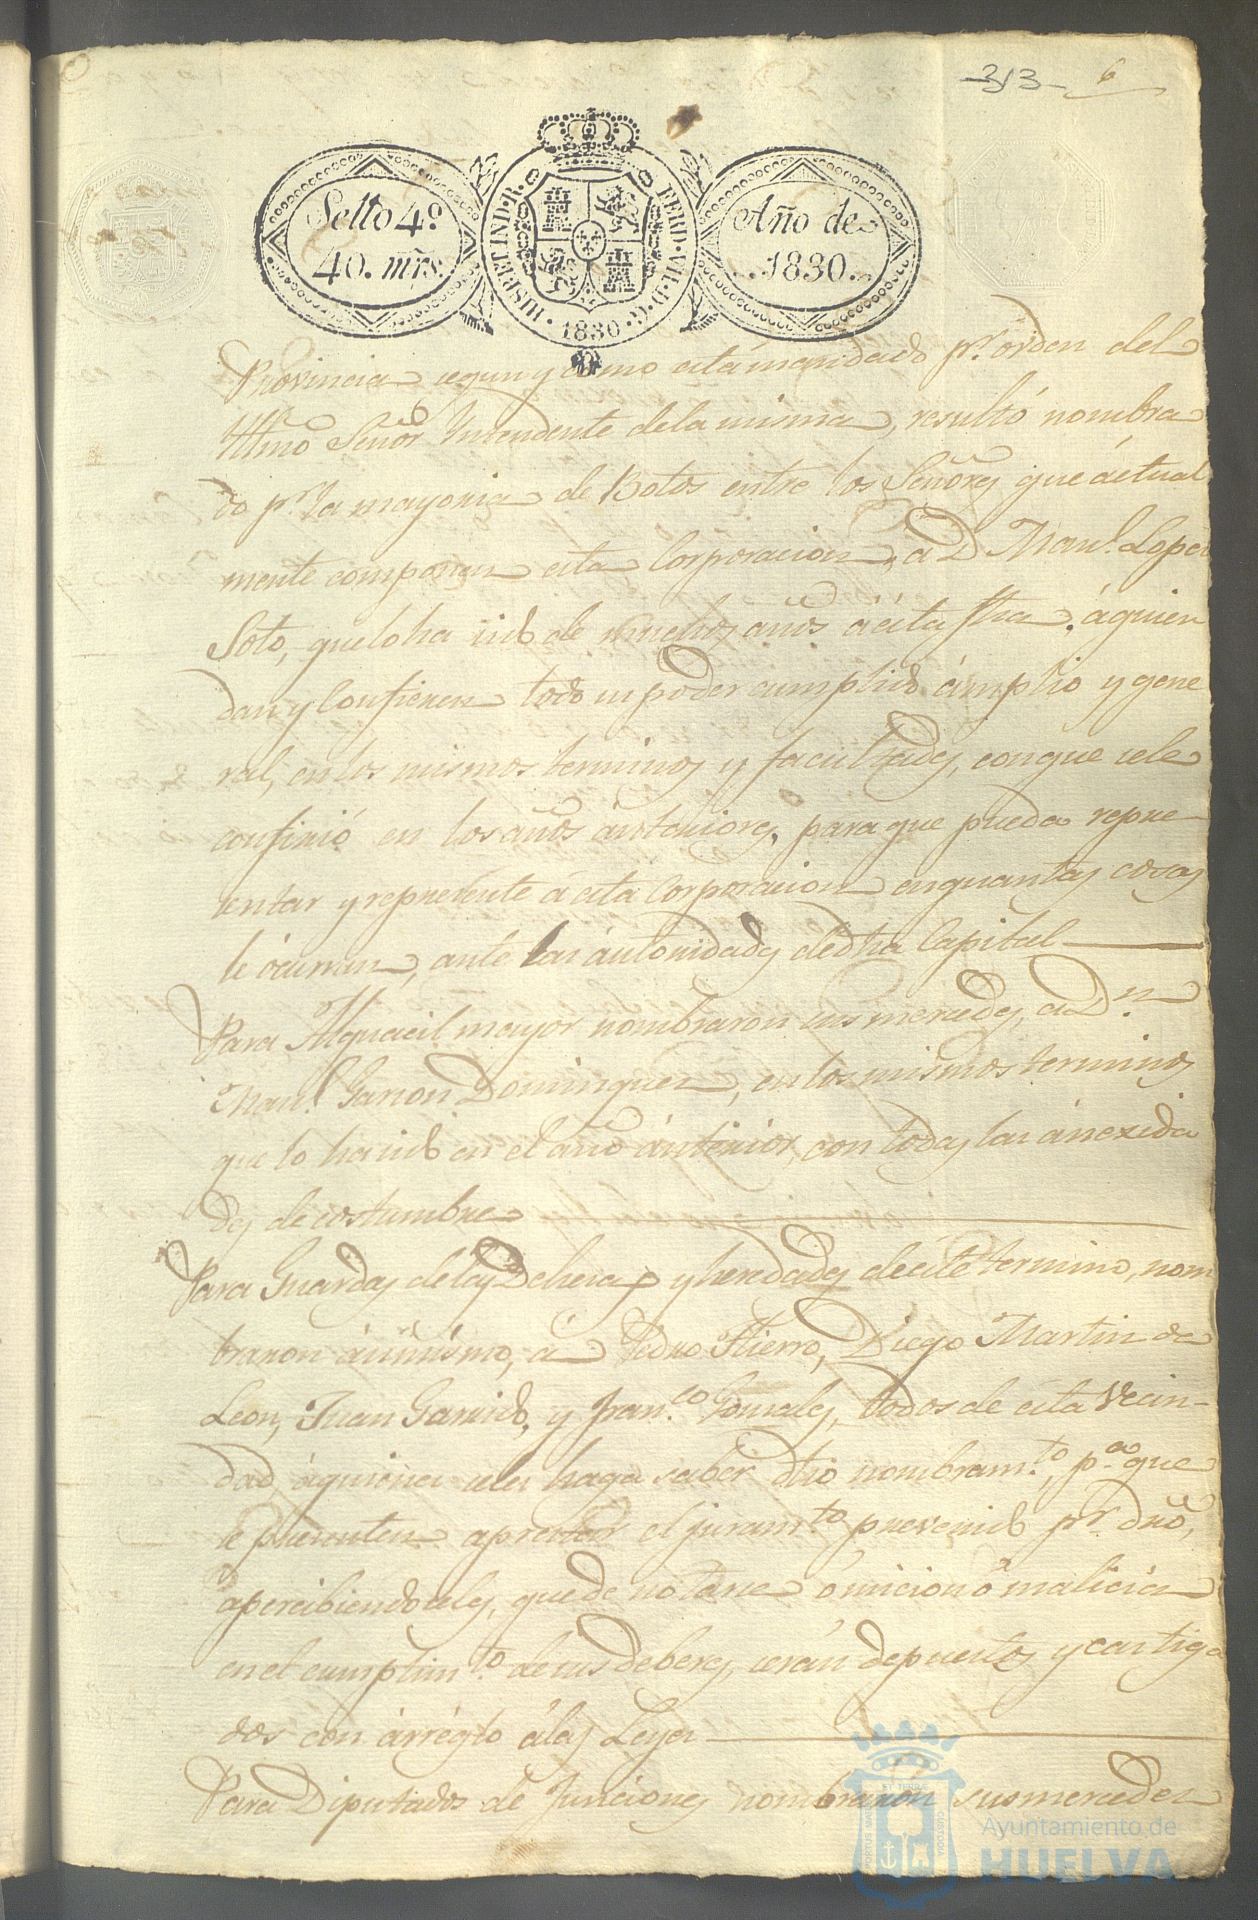 313 6
Sello 4.º
40. mrs.
HISP. ET IND. R. FERD. VII. D. G. 1830
Año de
1830.
Provincia segun y como está mandado pr. orden del
Yllmo Señor Yntendente de la misma, resultó nombra
do pr. la mayoria de Botos entre los Señores que áctual
mente componen esta Corporacion, á D Man.l Lopez
Soto, que lo ha sido de muchos años á ésta fha, áquien
dan y Confieren todo su poder cumplido ámplio y gene
ral, en los mismos terminos y facultades, conque sele
confirió en los años ánteriores, para que pueda repre
sentar y represente á esta Corporacion enquantas cosas
le ócurran, ante las áutoridades dedha Capital
Para Alguacil mayor nombraron sus mercedes, a Dn.
Man.l Garzon Dominguez, en los mismos terminos
que lo ha sido en el año ánterior, con todas las ánexida
des de costumbre
Para Guardas de las Dehesas y heredades de éste termino, nom
braron ásimismo, á Pedro Hierro, Diego Martin de
Leon, Juan Garrido, y Fran.co Gonzales, todos de ésta Vecin-
dad, áquienes seles haga saber dho nombram.to, p.a que
se presenten aprestar el juram.to prevenido pr. dro,
apercibiendoseles, que de notarse ómicion ó malicia
en el cumplim.to de sus deberes, serán depuestos y castiga
dos con árréglo álas Leyes
Para Diputados de Funciones nombraron sus mercedes
PORTUS MARIS ET TERRAE CUSTODIA
Ayuntamiento de
HUELVA